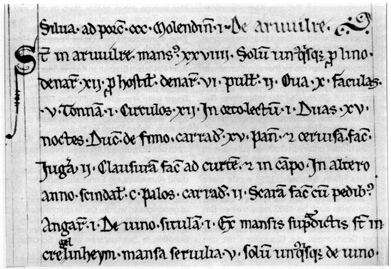 Silua · ad porc̄ · ccc · Molendin̄ · i · De aruuilre ·
St̄ in aruuilre · mansꝰ xxviiii · Soluī unꝰqͥsqꝫ ꝑ lino ·
denar̄ · xii · ꝓ hostil̄ · denar̄ · vi · pull̄ · ii · Oua · x · faculas
· v · Tonnā · i · Circulos · xii · In octo lectum̄ · i · Duas · xv ·
noctes · Duc̄ · de fimo · carrad̄ · xv · Pan̄ · ⁊ ceruisā · fac̄ ·
Jugͣ · ii · Clausurā fac̄ ad curtē · ⁊ in cāpo · In altero
anno · scindal̄ · c · Palos · carrad̄ · ii · Scarā fac̄ cū pedibꝰ
Angar̄ · i · De uino · sitularī · i · Ex mansis supͣdictis st̄ in
crelinheym · mansa seruilia · v · soluī unꝰqͥsqꝫ de uino ·